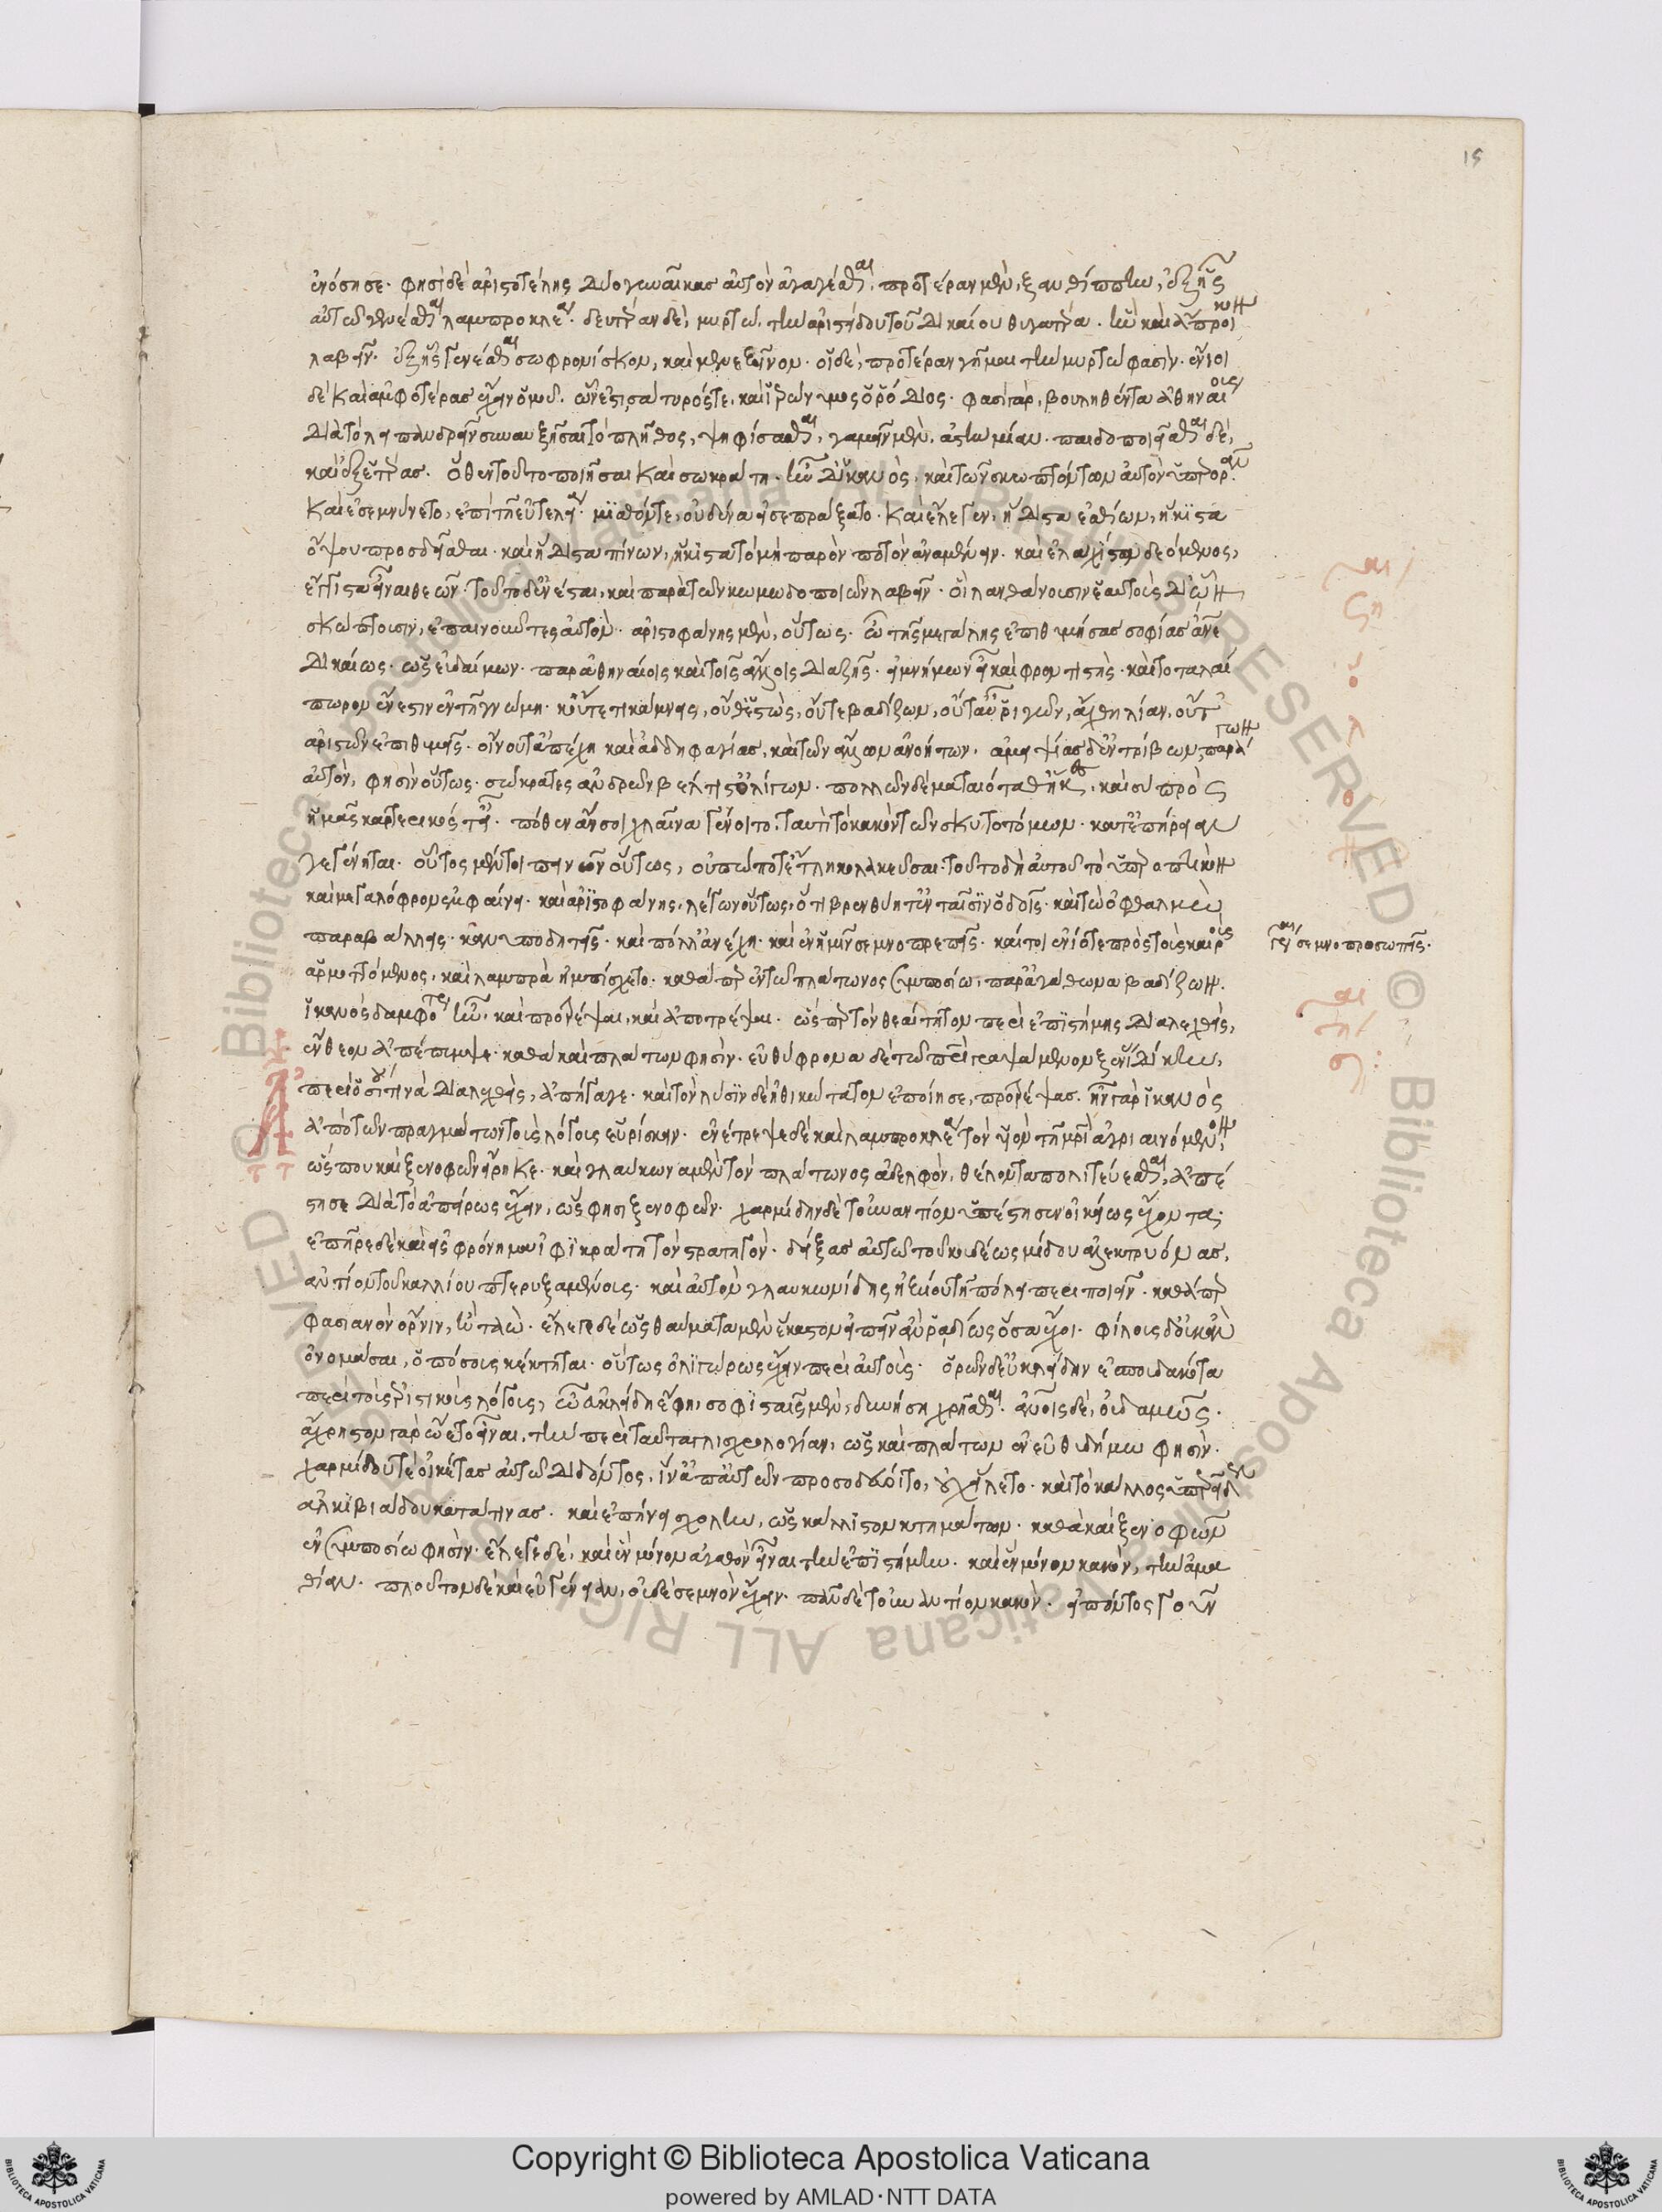 ἐνόσησε. φησὶ δὲ ἀριστοτέλης δύο γυναῖκας αὐτὸν ἀγαγέσθαι. προτέραν μὲν, ξανθίππην, ἐξ ἧς
αὐτῷ γενέσθαι λαμπροκλέα. δευτέραν δὲ, μυρτὼ, τὴν ἀριστείδου τοῦ δικαίου θυγατέρα. ἣν καὶ ἄπροικον
λαβεῖν. ἐξ ἧς γενέσθαι σωφρονίσκον, καὶ μενέξενον. οἱ δὲ, προτέραν γῆμαι τὴν μυρτὼ φασὶν. ἔνιοι
δὲ καὶ ἀμφοτέρας ἔχειν ὁμοῦ. ὧν ἐστι σάτυρός τε, καὶ ἱερώνυμος ὁ ῥόδιος. φασὶ γὰρ, βουληθέντας ἀθηναίους
διὰ τὸ λειπανδρεῖν συναυξῆσαι τὸ πλῆθος, ψηφίσασθαι, γαμεῖν μὲν, ἀστὴν μίαν. παιδοποιεῖσθαι δὲ,
καὶ ἐξ ἑτέρας. ὅθεν τοῦτο ποιῆσαι καὶ σωκράτη. ἦν δ' ἱκανὸς, καὶ τῶν σκωπτόντων αὐτὸν ὑπερορᾶν.
καὶ ἐσεμνύνετο, ἐπὶ τῇ εὐτελείᾳ. μισθόν τε, οὐδένα εἰσεπράξατο. καὶ ἔλεγεν, ἥδιστα ἐσθίων, ἥκιστα
ὄψου προσδεῖσθαι. καὶ ἥδιστα πίνων, ἥκιστα τὸ μὴ παρὸν ποτὸν ἀναμένειν. καὶ ἐλαχίστων δεόμενος,
ἔγγιστα εἶναι θεῶν. τοῦτο δ' ἐνέσται, καὶ παρὰ τῶν κωμωδοποιῶν λαβεῖν. οἳ λανθάνουσιν ἑαυτοὺς δι' ὧν
σκώπτουσιν, ἐπαινοῦντες αὐτόν. ἀριστοφάνης μὲν, οὕτως. ὦ τῆς μεγάλης ἐπιθυμήσας σοφίας ἄνθρωπε
δικαίως. ὡς εὐδαίμων. παρ' ἀθηναίοις καὶ τοῖς ἄλλοις διαζῇς. εἶ μνήμων εἶ καὶ φροντιστής. καὶ τὸ ταλαί
πωρον ἔνεστιν ἐν τῇ γνώμῃ. κοὔτε τι κάμνεις, οὔθ' ἑστὼς, οὔτε βαδίζων, οὔτ' αὖ ῥιγῶν, ἄχθῃ λίαν, οὔτ'
ἀρίστων ἐπιθυμεῖς. οἴνου τ' ἀπέχῃ καὶ ἀδδηφαγίας, καὶ τῶν ἄλλων ἀνοήτων. ἀμειψίας δ' ἐν τρίβωνι παράγων
αὐτὸν, φησὶν οὕτως. σώκρατες ἀνδρῶν βέλτιστ' ὀλίγων. πολλῶν δὲ ματαιότατ' ἥκεις. καὶ σὺ πρὸς
ἡμᾶς καρτερικός τ' εἶ. πόθεν ἄν σοι χλαῖνα γένοιτο. τουτὶ τὸ κακὸν τῶν σκυτοτόμων. κατ' ἐπήρειαν
γεγένηται. οὗτος μέντοι πεινῶν οὕτως, οὐπώποτ' ἔτλη κολακεῦσαι. τοῦτο δὴ αὐτοῦ τὸ ὑπεροπτικὸν
καὶ μεγαλόφρον ἐμφαίνει. καὶ ἀριστοφάνης, λέγων οὕτως, ὅτι βρενθύῃ τ' ἐν ταῖσιν ὁδοῖς. καὶ τὼ ὀφθαλμὼ
παραβάλλεις. κἀνυπόδητος. καὶ πόλλ' ἀνέχῃ. καὶ ἐν ἡμῖν σεμνοπρεπεῖς. καίτοι ἐνίοτε πρὸς τοὺς καιροὺς
γράφεται σεμνοπροσωπεῖς.
ἁρμοττόμενος, καὶ λαμπρὰ ἠμπίσχετο. καθάπερ ἐν τῷ πλάτωνος συμποσίῳ, παρ' ἀγάθωνα βαδίζων.
ἱκανὸς δ' ἀμφότερα ἦν. καὶ προτρέψαι, καὶ ἀποτρέψαι. ὥσπερ τὸν θεαίτητον περὶ ἐπιστήμης διαλεχθεὶς,
ἔνθεον ἀπέπεμψε. καθὰ καὶ πλάτων φησὶν. εὐθύφρονα δὲ τῷ πατρὶ γραψάμενον ξενίας δίκην,
περὶ ὁσίου τινὰ διαλεχθεὶς, ἀπήγαγε. καὶ τὸν λύσιν δὲ ἠθικώτατον ἐποίησε, προτρέψας. ἦν γὰρ ἱκανὸς
ἀπὸ τῶν πραγμάτων τοὺς λόγους εὑρίσκειν. ἐνέτρεψε δὲ καὶ λαμπροκλέα τὸν υἱὸν τῇ μητρὶ ἀγριαινόμενον,
ὥς που καὶ ξενοφῶν εἴρηκε. καὶ γλαύκωνα μὲν τὸν πλάτωνος ἀδελφὸν, θέλοντα πολιτεύεσθαι, ἀπέ
στησε διὰ τὸ ἀπείρως ἔχειν, ὥς φησι ξενοφῶν. χαρμίδην δὲ τοὐναντίον ὑπέστησεν οἰκείως ἔχοντα.
ἐπῆρε δὲ καὶ εἰς φρόνημα ἰφικράτη τὸν στρατηγὸν. δείξας αὐτῷ τοῦ κουρέως μίδου ἀλεκτρυόνας,
ἀντίον τοῦ καλλίου πτερυξαμένους. καὶ αὐτὸν γλαυκωνίδης ἠξίου τῇ πόλει περιποιεῖν. καθάπερ
φασιανὸν ὄρνιν, ἢ ταώ. ἔλεγε δὲ ὡς θαυμάζει μὲν ἕκαστον εἰπεῖν ἂν ῥαδίως ὅσα ἔχοι. φίλους δ' οὐκ ἂν
ὀνομάσαι, ὁπόσους κέκτηται. οὕτως ὀλιγώρως ἔχειν περὶ αὐτούς. ὁρῶν δ' εὐκλείδην ἐσπουδακότα
περὶ τοὺς ἐριστικοὺς λόγους, ὦ εὐκλείδη ἔφη, σοφισταῖς μὲν, δυνήσῃ χρῆσθαι. ἀνθρώποις δὲ, οὐδαμῶς.
ἄχρηστον γὰρ ᾤετο εἶναι, τὴν περὶ ταῦτα γλισχρολογίαν, ὡς καὶ πλάτων ἐν εὐθυδήμῳ φησὶν.
χαρμίδου τε οἰκέτας αὐτῷ διδόντος, ἵν' ἀπ' αὐτῶν προσοδεύοιτο, οὐχ εἵλετο. καὶ τὸ κάλλος ὑπερεῖδεν
ἀλκιβιάδου κατά τινας. καὶ ἐπῄνει σχολὴν, ὡς κάλλιστον κτημάτων. καθὰ καὶ ξενοφῶν
ἐν συμποσίῳ φησὶν. ἔλεγε δὲ, καὶ ἓν μόνον ἀγαθὸν εἶναι τὴν ἐπιστήμην. καὶ ἓν μόνον κακὸν, τὴν ἀμα
θίαν. πλοῦτον δὲ καὶ εὐγένειαν, οὐδὲν σεμνὸν ἔχειν. πᾶν δὲ τοὐναντίον κακόν. εἰπόντος γοῦν
15
© Biblioteca Apostolica Vaticana ALL RIGHTS RESERVED
Copyright © Biblioteca Apostolica Vaticana
powered by AMLAD·NTT DATA
BIBLIOTECA APOSTOLICA VATICANA
BIBLIOTECA APOSTOLICA VATICANA